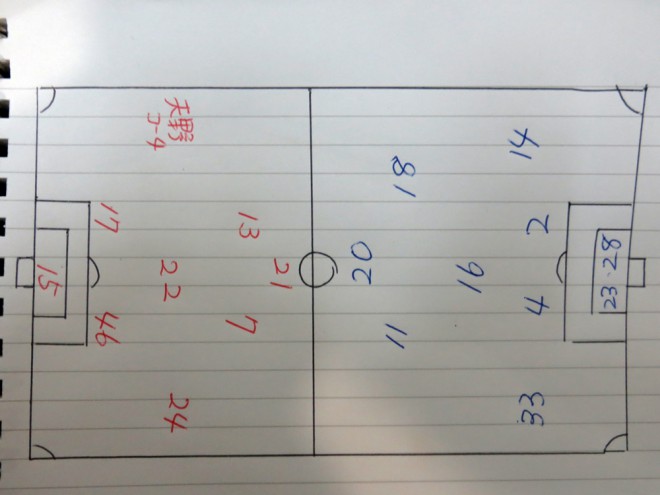 天野
コーチ
17
13
15
22
21
46
7
24
14
18
2
20
16
23・28
4
11
33